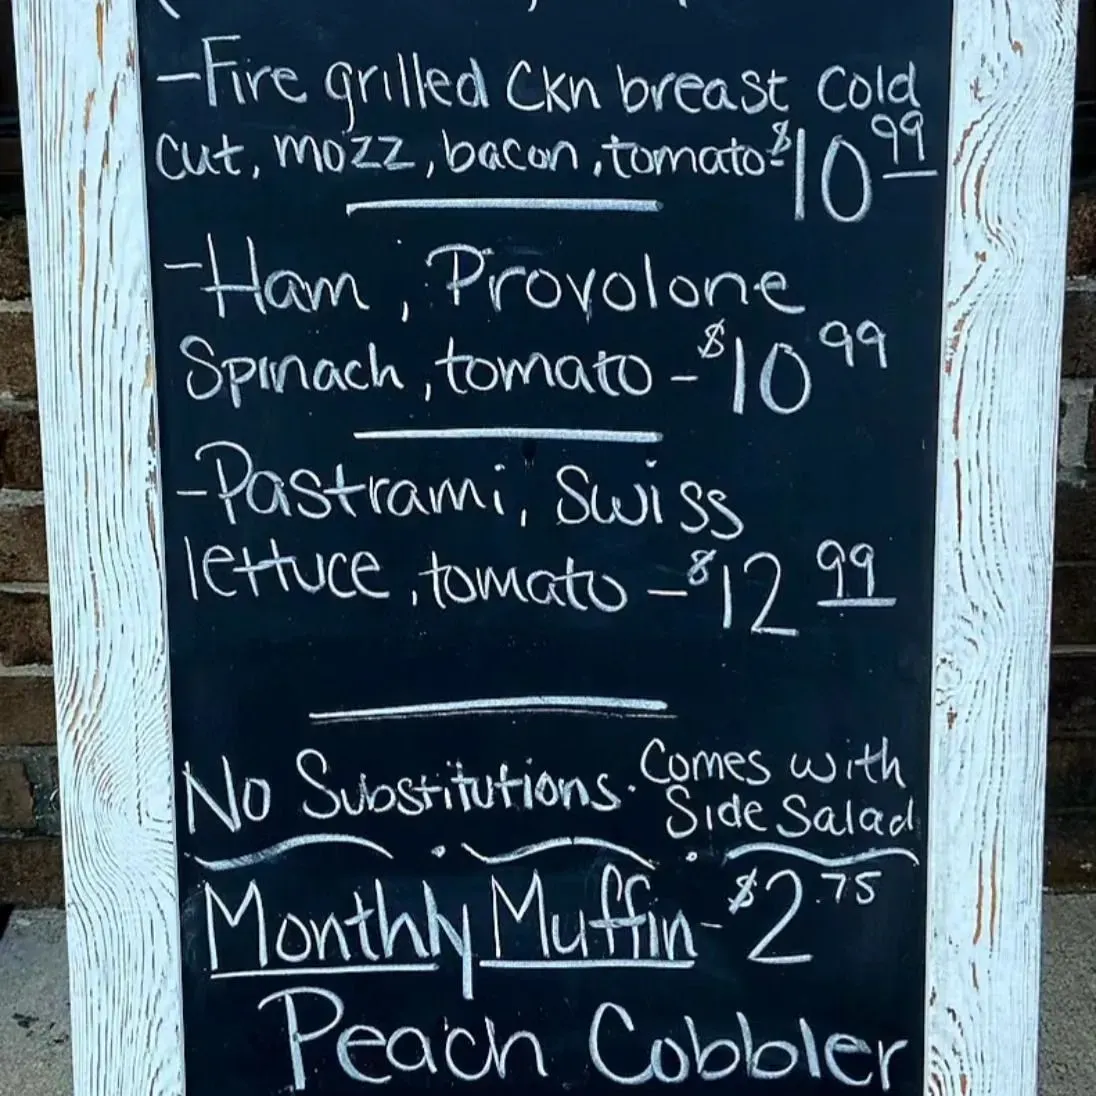 -Fire grilled Ckn breast cold
cut, mozz, bacon, tomato-$10 99
-Ham, Provolone
Spinach, tomato -$10 99
-Pastrami, Swiss
lettuce, tomato -$12 99
No Substitutions. Comes with
Side Salad
Monthly Muffin- $2.75
Peach Cobbler